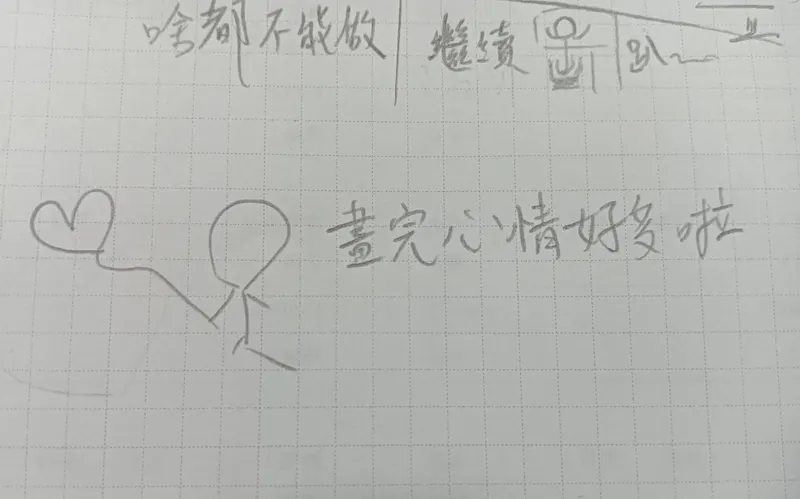 啥都不能做
繼續
趴~
畫完心情好多啦